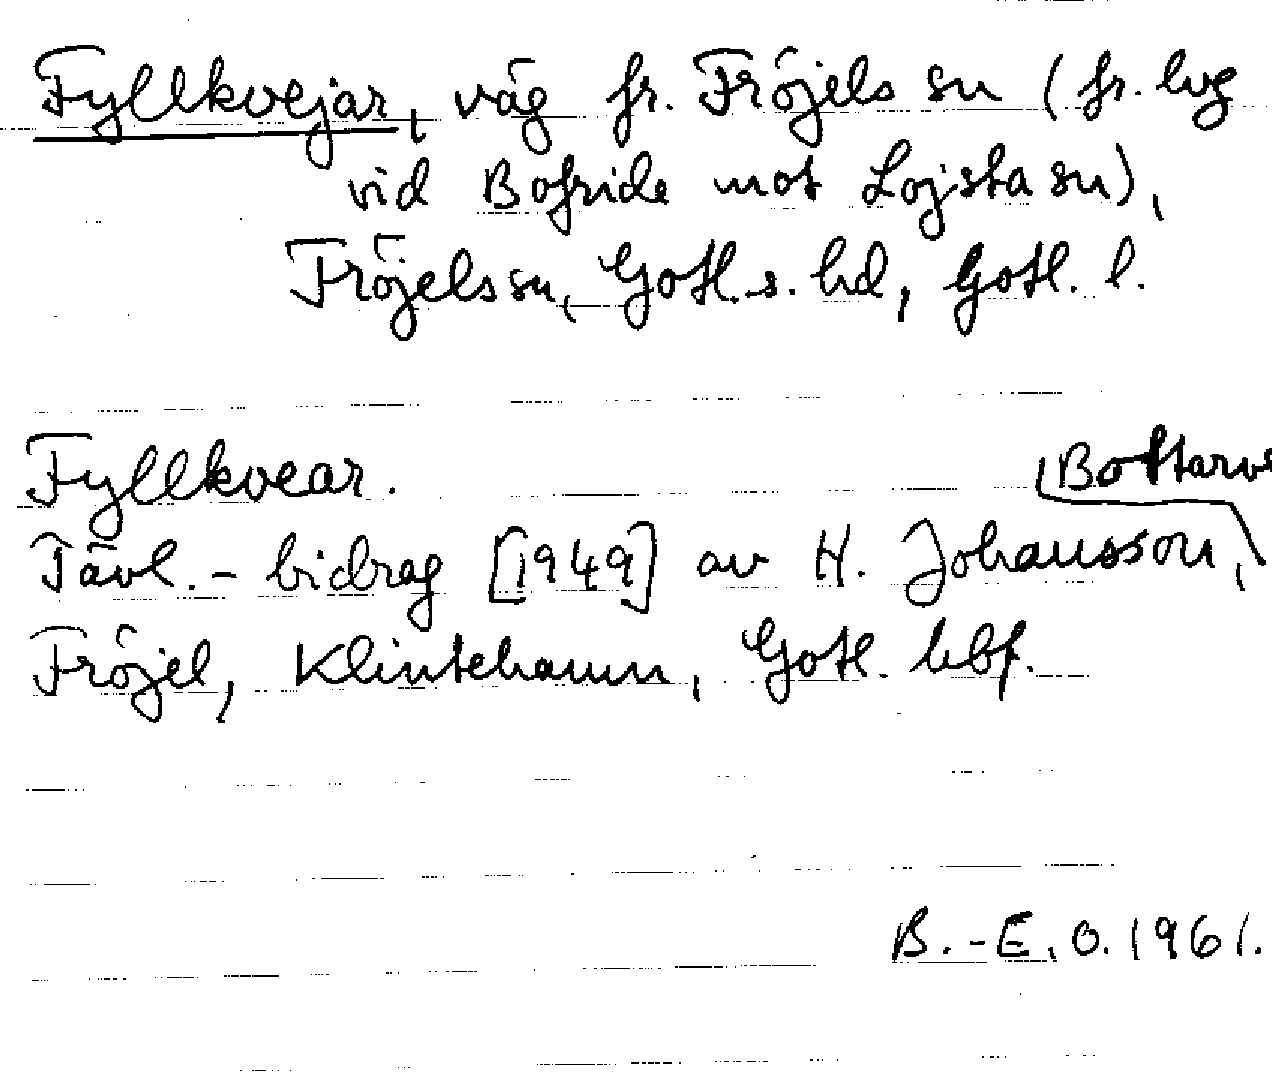 Fyllkvejar, väg fr. Fröjels sn (fr. lvg
vid Bofride mot Lojsta sn),
Fröjels sn, Gotl. s. hd, Gotl. l.
Fyllkvear.
Bottarve
Tävl.- bidrag [1949] av H. Johansson,
Fröjel, Klintehamn, Gotl. hbf.
B.-E. O. 1961.